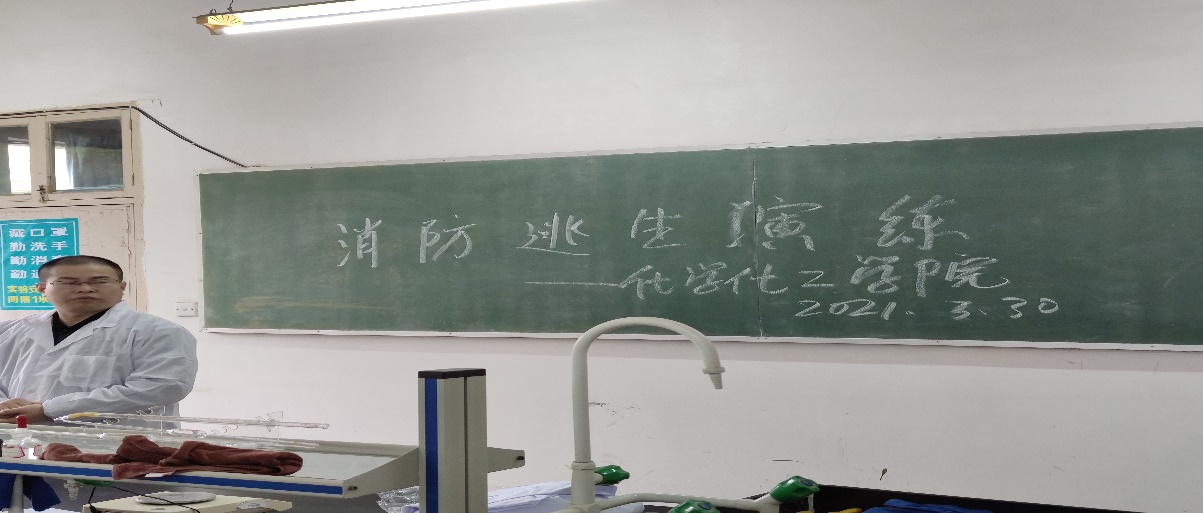 消防逃生演练
——化学化工学院
2021.3.30
戴口罩
勤洗手
勤消
勤
实验
间隔1米